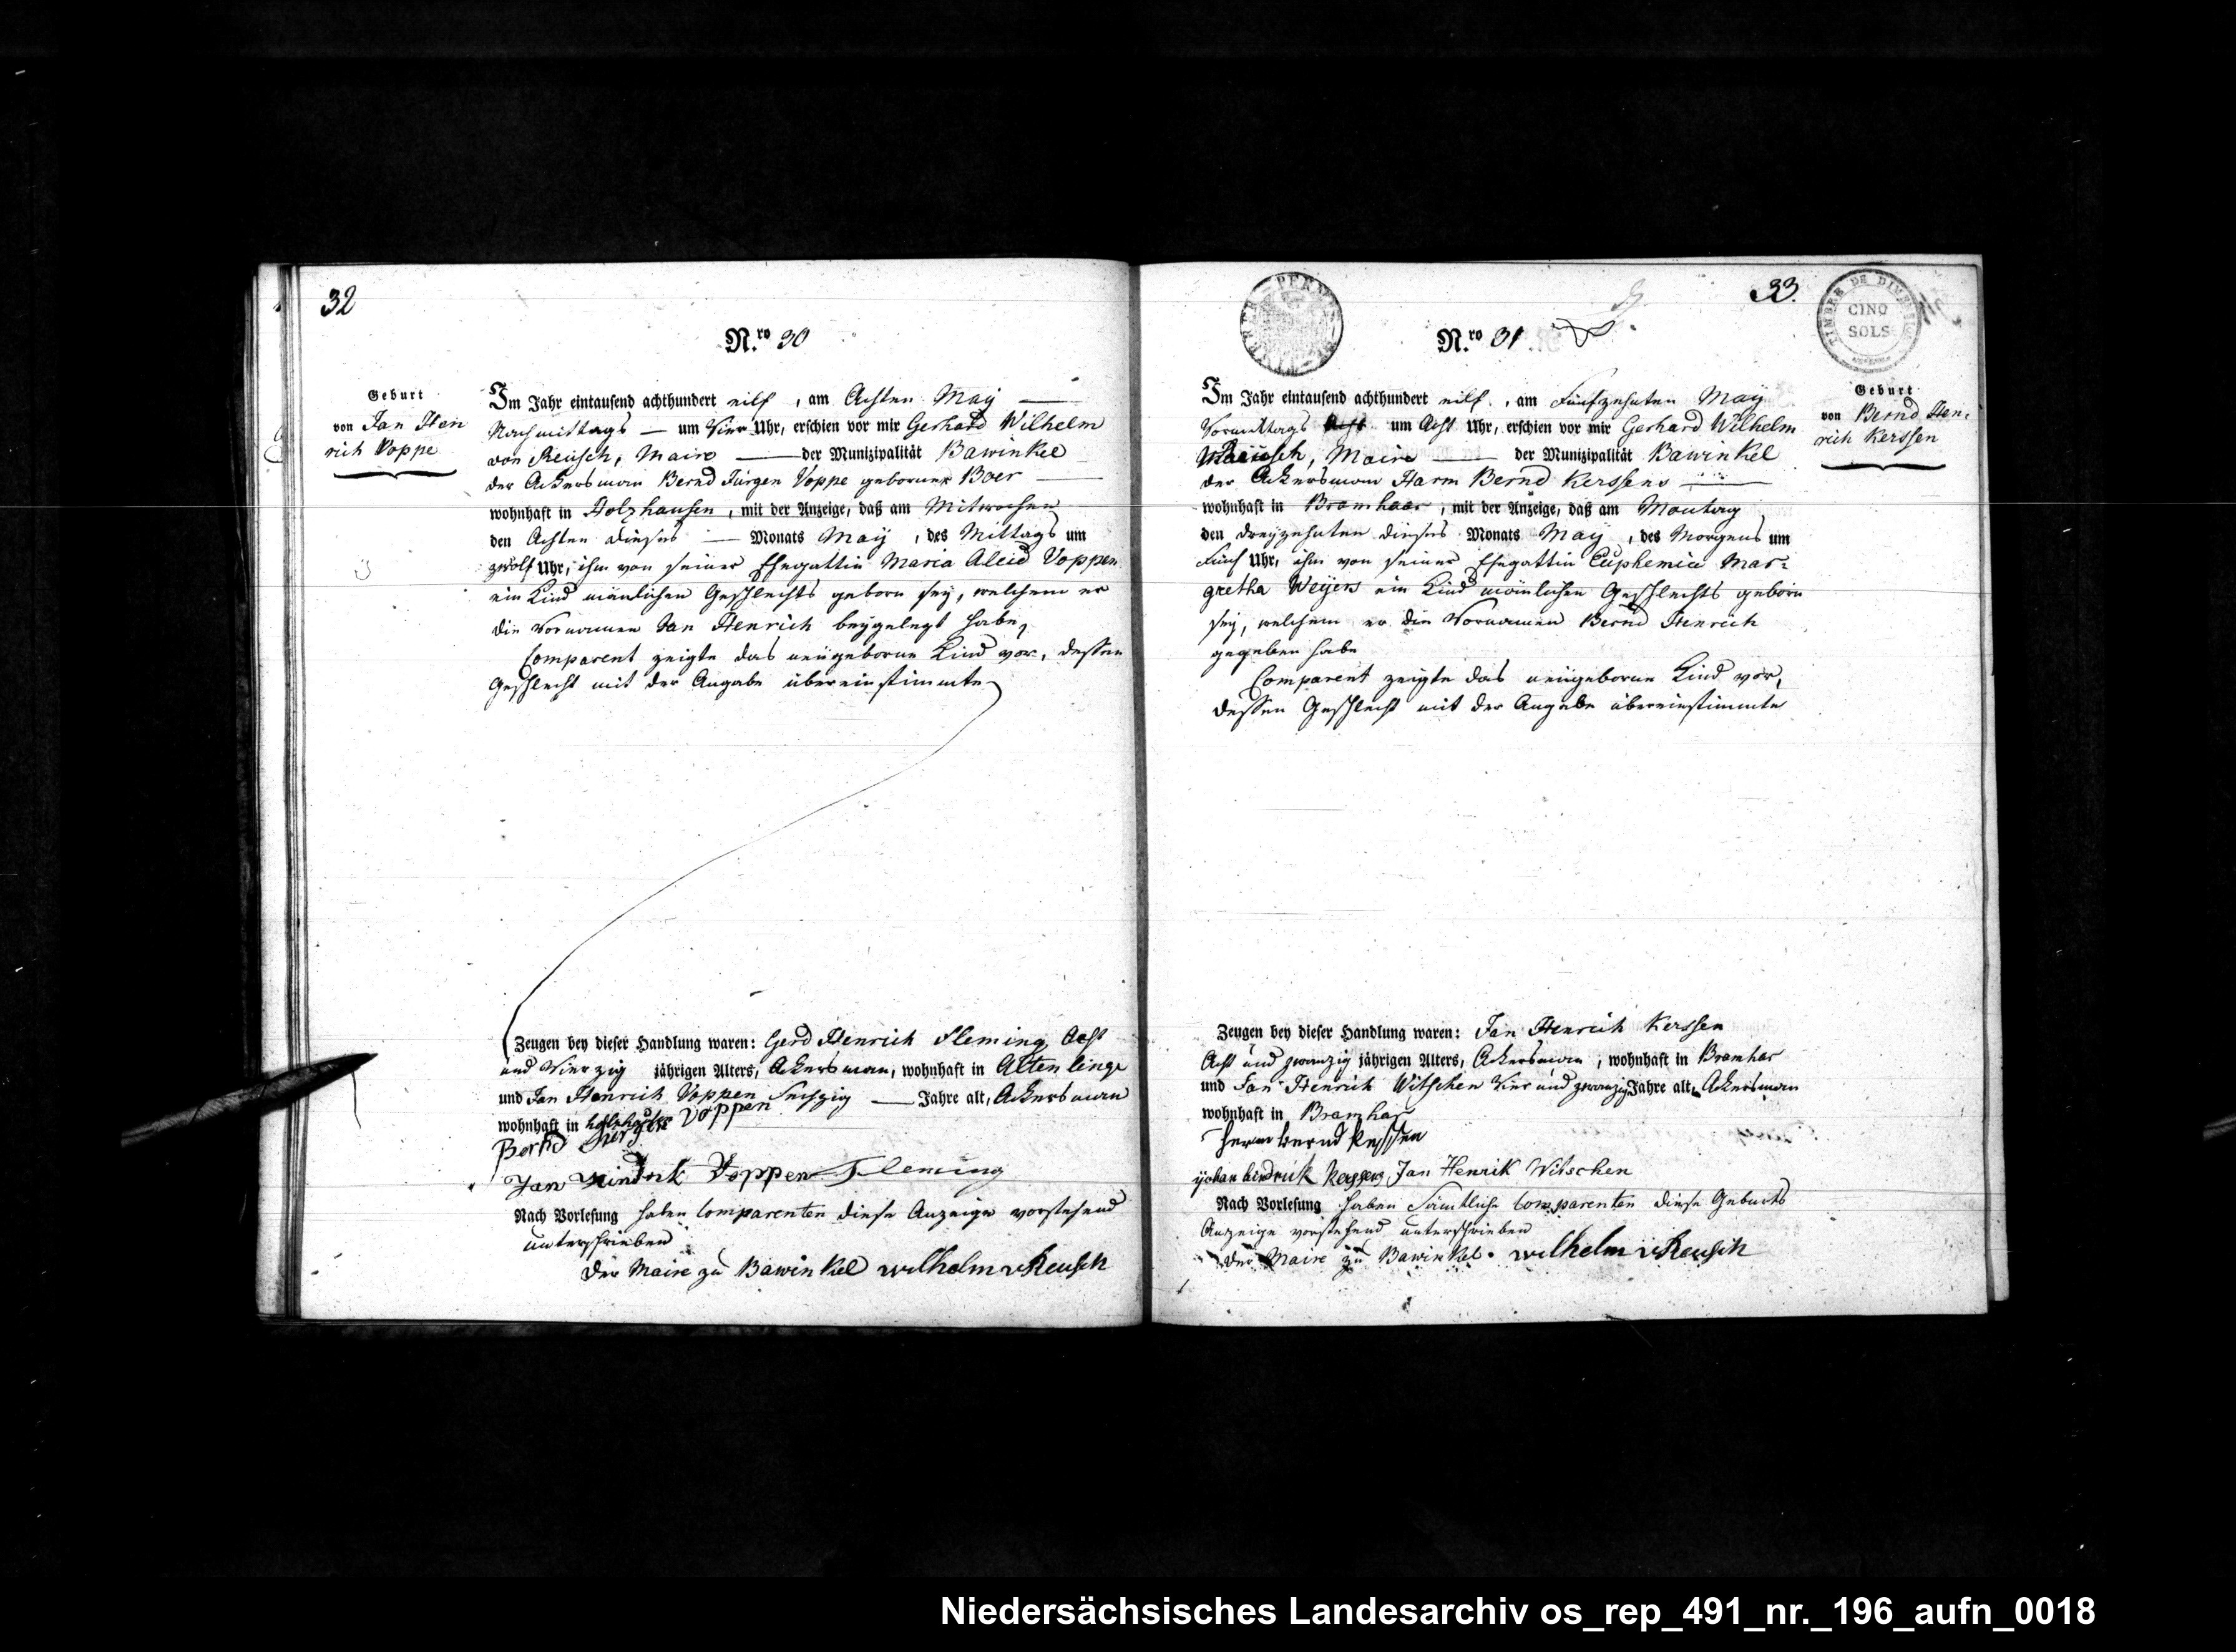 32
N.ro 30
Geburt
von Jan Hen
rich Voppe
Im Jahr eintausend achthundert eilf, am Achten May
Nachmittags um Vier Uhr, erschien vor mir Gerhard Wilhelm
von Reusch, Maire der Munizipalität Bawinkel
der Ackersman Bernd Jürgen Voppe geborner Boer
wohnhaft in Holzhausen, mit der Anzeige, daß am Mitwochen
den Achten dieses Monats May, des Mittags um
zwölf Uhr, ihm von seiner Ehegattin Maria Aleid Voppen
ein Kind mänlichen Geschlechts geborn sey, welchem er
die Vornamen Jan Henrich beygelegt habe,
Comparent zeigte das neügeborne Kind vor, dessen
Geschlecht mit der Angabe übereinstimmte
Zeugen bey dieser Handlung waren: Gerd Henrich Fleming, Acht
und Vierzig jährigen Alters, Ackersman, wohnhaft in Altenlinge
und Jan Henrich Voppen Sechzig Jahre alt, Ackersman
wohnhaft in holzhausen
Bernd Jurgen Voppen
Jan Hindrik Voppen Fleming
Nach Vorlesung haben Comparenten diese Anzeige vorstehend
unterschrieben
Der Maire zu Bawinkel Wilhelm v Reusch
33.
TIMBRE DE DIMENSION
CINQ
SOLS
N.ro 31
Geburt
von Bernd Hen-
rich Kerssen
Im Jahr eintausend achthundert eilf, am Fünfzehnten May
Vormittags um Acht Uhr, erschien vor mir Gerhard Wilhelm
v Reusch, Maire der Munizipalität Bawinkel
der Ackersman Harm Bernd Kerssens
wohnhaft in Bramhaar, mit der Anzeige, daß am Montag
den dreyzehnten dieses Monats May, des Morgens um
Fünf Uhr, ihm von seiner Ehegattin Euphemia Mar-
gretha Weyers ein Kind mänlichen Geschlechts geborn
sey, welchem er die Vornamen Bernd Henrich
gegeben habe
Comparent zeigte das neügeborne Kind vor,
dessen Geschlecht mit der Angabe übereinstimmte
Zeugen bey dieser Handlung waren: Jan Henrich Kerssen
Acht und zwanzig jährigen Alters, Ackersman, wohnhaft in Bramhar
und Jan Henrich Witschen Vier und zwanzig Jahre alt, Ackersman
wohnhaft in Bramhar
Herm bernd Kerssen
johan hindrick Kerssens Jan Henrik Witschen
Nach Vorlesung haben Sämtliche Comparenten diese Geburts
Anzeige vorstehend unterschrieben
Der Maire zu Bawinkel. Wilhelm v Reusch
Niedersächsisches Landesarchiv os_rep_491_nr._196_aufn_0018